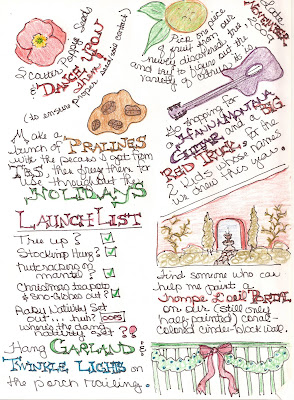 Scatter Poppy Seeds
& DANCE UPON
them
(to ensure
proper seed/soil contact)
Make a
bunch of PRALINES
with the pecans I got from
TJ's, then freeze them for
use throughout the
HOLIDAYS
LAUNCH LIST
Tree up?
Stockings Hung?
Nutcrackers on
mantle?
Christmas teapots
& Sno-Globes out?
Baby Nativity Set
out... huh? OOPS
where's the dang
nativity set?!
Hang GARLAND &
TWINKLE LIGHTS on
the porch railing.
Late
NOVEMBER
Pick one piece
of fruit from our
newly discovered tree
and try to figure out the
variety of orange it is.
Go shopping for a
GUITAR and a BIG
RED TRUCK for the
2 kids whose names
we drew this year.
Find someone who can
help me paint a
Trompe L'oeil PORTAL
on our (still only
half-painted) coral
colored cinder-block wall.